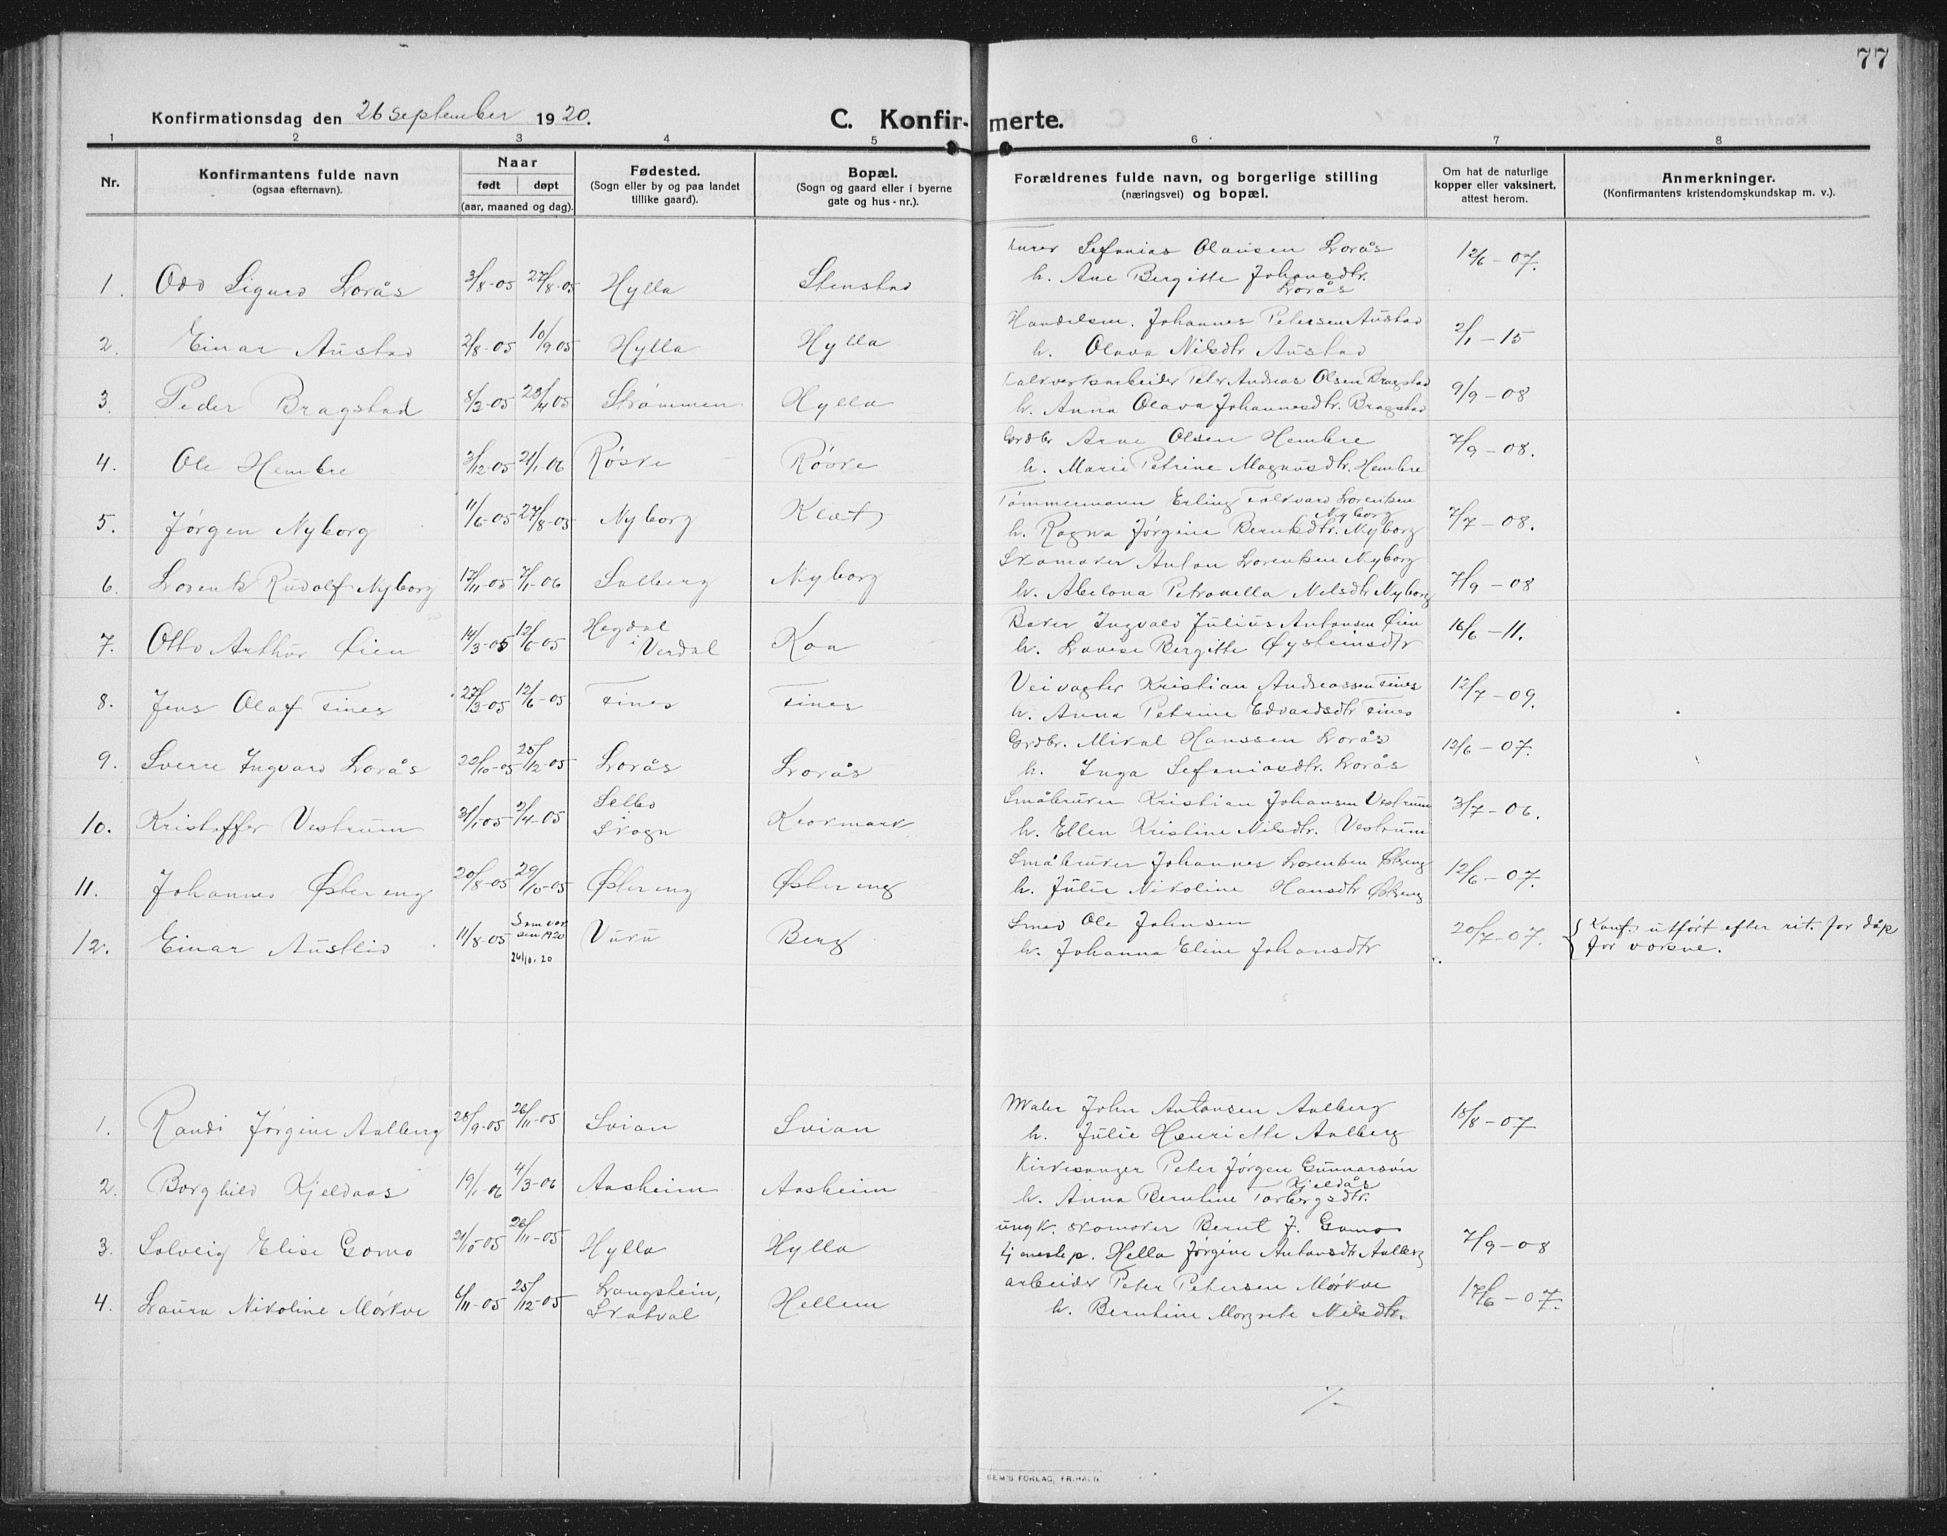 77
Konfirmationsdag den 26 september 1920.
C. Konfirmerte.
1 2 3 4 5 6 7 8
Nr.
Konfirmantens fulde navn
(ogsaa efternavn).
Naar
født døpt
(aar, maaned og dag).
Fødested.
(Sogn eller by og paa landet
tillike gaard).
Bopæl.
(Sogn og gaard eller i byerne
gate og hus-nr.).
Forældrenes fulde navn, og borgerlige stilling
(næringsvei) og bopæl.
Om hat de naturlige
kopper eller vaksinert,
attest herom.
Anmerkninger.
(Konfirmantens kristendomskundskap m. v.).
Sefanias Olausen Lorås
1. Odd Sigurd Lorås 3/8-05 27/8-05 Hylla Stenstad h. Ane Bergitte Johansdtr. 12/6-07.
Lorås
Handelsm. Johannes Petersen Austad
2. Einar Austad 2/8-05 10/9 05 Hylla Hylla h. Olava Nilsdtr Austad 2/1-15
Kalkverksarbeider Peter Andreas Olsen Bragstad
3. Peder Bragstad 8/3-05 23/4 05 Strømmen Hylla h. Anna Olava Johannesdtr. Bragstad 9/9-08
Grdbr Arne Olsen Hembre
4. Ole Hembre 3/12-05 21/1 06 Røske Røske h. Marie Petrine Magnusdtr. Hembre 7/9-08.
Tømmermann Erling Folkvard Lorentsen
Nyborg
5. Jørgen Nyborg 11/6-05 27/8-05 Nyborg Klæt h. Ragna Jørgine Berntsdtr. Nyborg 7/7-08.
Skomaker Anton Lorentsen Nyborg
6. Lorents Rudolf Nyborg 17/11-05 7/1-06 Salberg Nyborg h. Abelona Petronella Nelsdtr Nyborg 7/9-08
Baker Ingvald Julius Antonsen Øien
7. Otto Arthur Øien 14/3-05 12/6-05 Hegdal i Verdal Koa h. Lovise Bergitte Øysteinsdtr 16/6-11.
Veivagter Kristian Andreassen Tines
8. Jens Olaf Tines 27/3-05 12/6-05 Tines Tines h. Anna Petrine Edvardsdtr Tines 12/7-09.
Grdbr. Mikal Hanssen Lorås
9. Sverre Ingvard Lorås 22/10-05 25/12-05 Lorås Lorås h. Inga Sefaniasdtr. Lorås 12/6-07.
Småbruker Kristian Johansen Vestrum
10. Kristoffer Vestrum 31/1 05 2/4-05 Selbo Skogn Krokmark h. Ellen Kristine Nilsdtr. Vestrum 3/7-06.
Småbruker Johannes Lorentsen Østereng
11. Johannes Østereng 20/8-05 29/10-05 Østereng Østereng h. Julie Nikoline Hansdtr Østereng 12/6-07.
Smed Ole Johnsen
12. Einar Austlid 11/8-05 Som voksen 1920 24/10.20 Vuku Berg h. Johanna Eline Johansdtr 20/7-07. Konf. utført efter rit. for dåp
for voksne.
Maler John Antonsen Aalberg
1. Randi Jørgine Aalberg 28/9-05 26/11-05 Svian Svian h. Julie Henriette Aalberg 18/8-07
Kirkesanger Peter Jørgen Gunnarsön
Kjeldås
2. Borghild Kjeldaas 19/1-06 4/3-06 Aasheim Aasheim h. Anna Berntine Torbergsdtr.
ungk. skomaker Bernt J. Gomo
3. Solveig Elise Gomo 21/10-05 26/11-05 Hylla Hylla tjenestep. Hella Jørgine Antonsdtr Aalberg 7/9-08
arbeider Peter Petersen Mørkve
4. Laura Nikoline Mørkve 6/11-05 25/12-05 Langstein, Skatval Hellem h. Berntine Margrete Nelsdtr. 17/6-07.